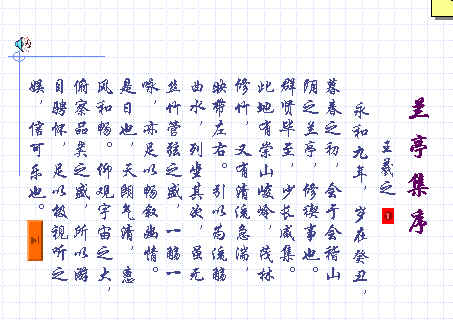 兰亭集序
王羲之
永和九年，岁在癸丑，
暮春之初，会于会稽山
阴之兰亭，修禊事也。
群贤毕至，少长咸集。
此地有崇山峻岭，茂林
修竹，又有清流急湍，
映带左右。引以为流觞
曲水，列坐其次，虽无
丝竹管弦之盛，一觞一
咏，亦足以畅叙幽情。
是日也，天朗气清，惠
风和畅。仰观宇宙之大，
俯察品类之盛，所以游
目骋怀，足以极视听之
娱，信可乐也。